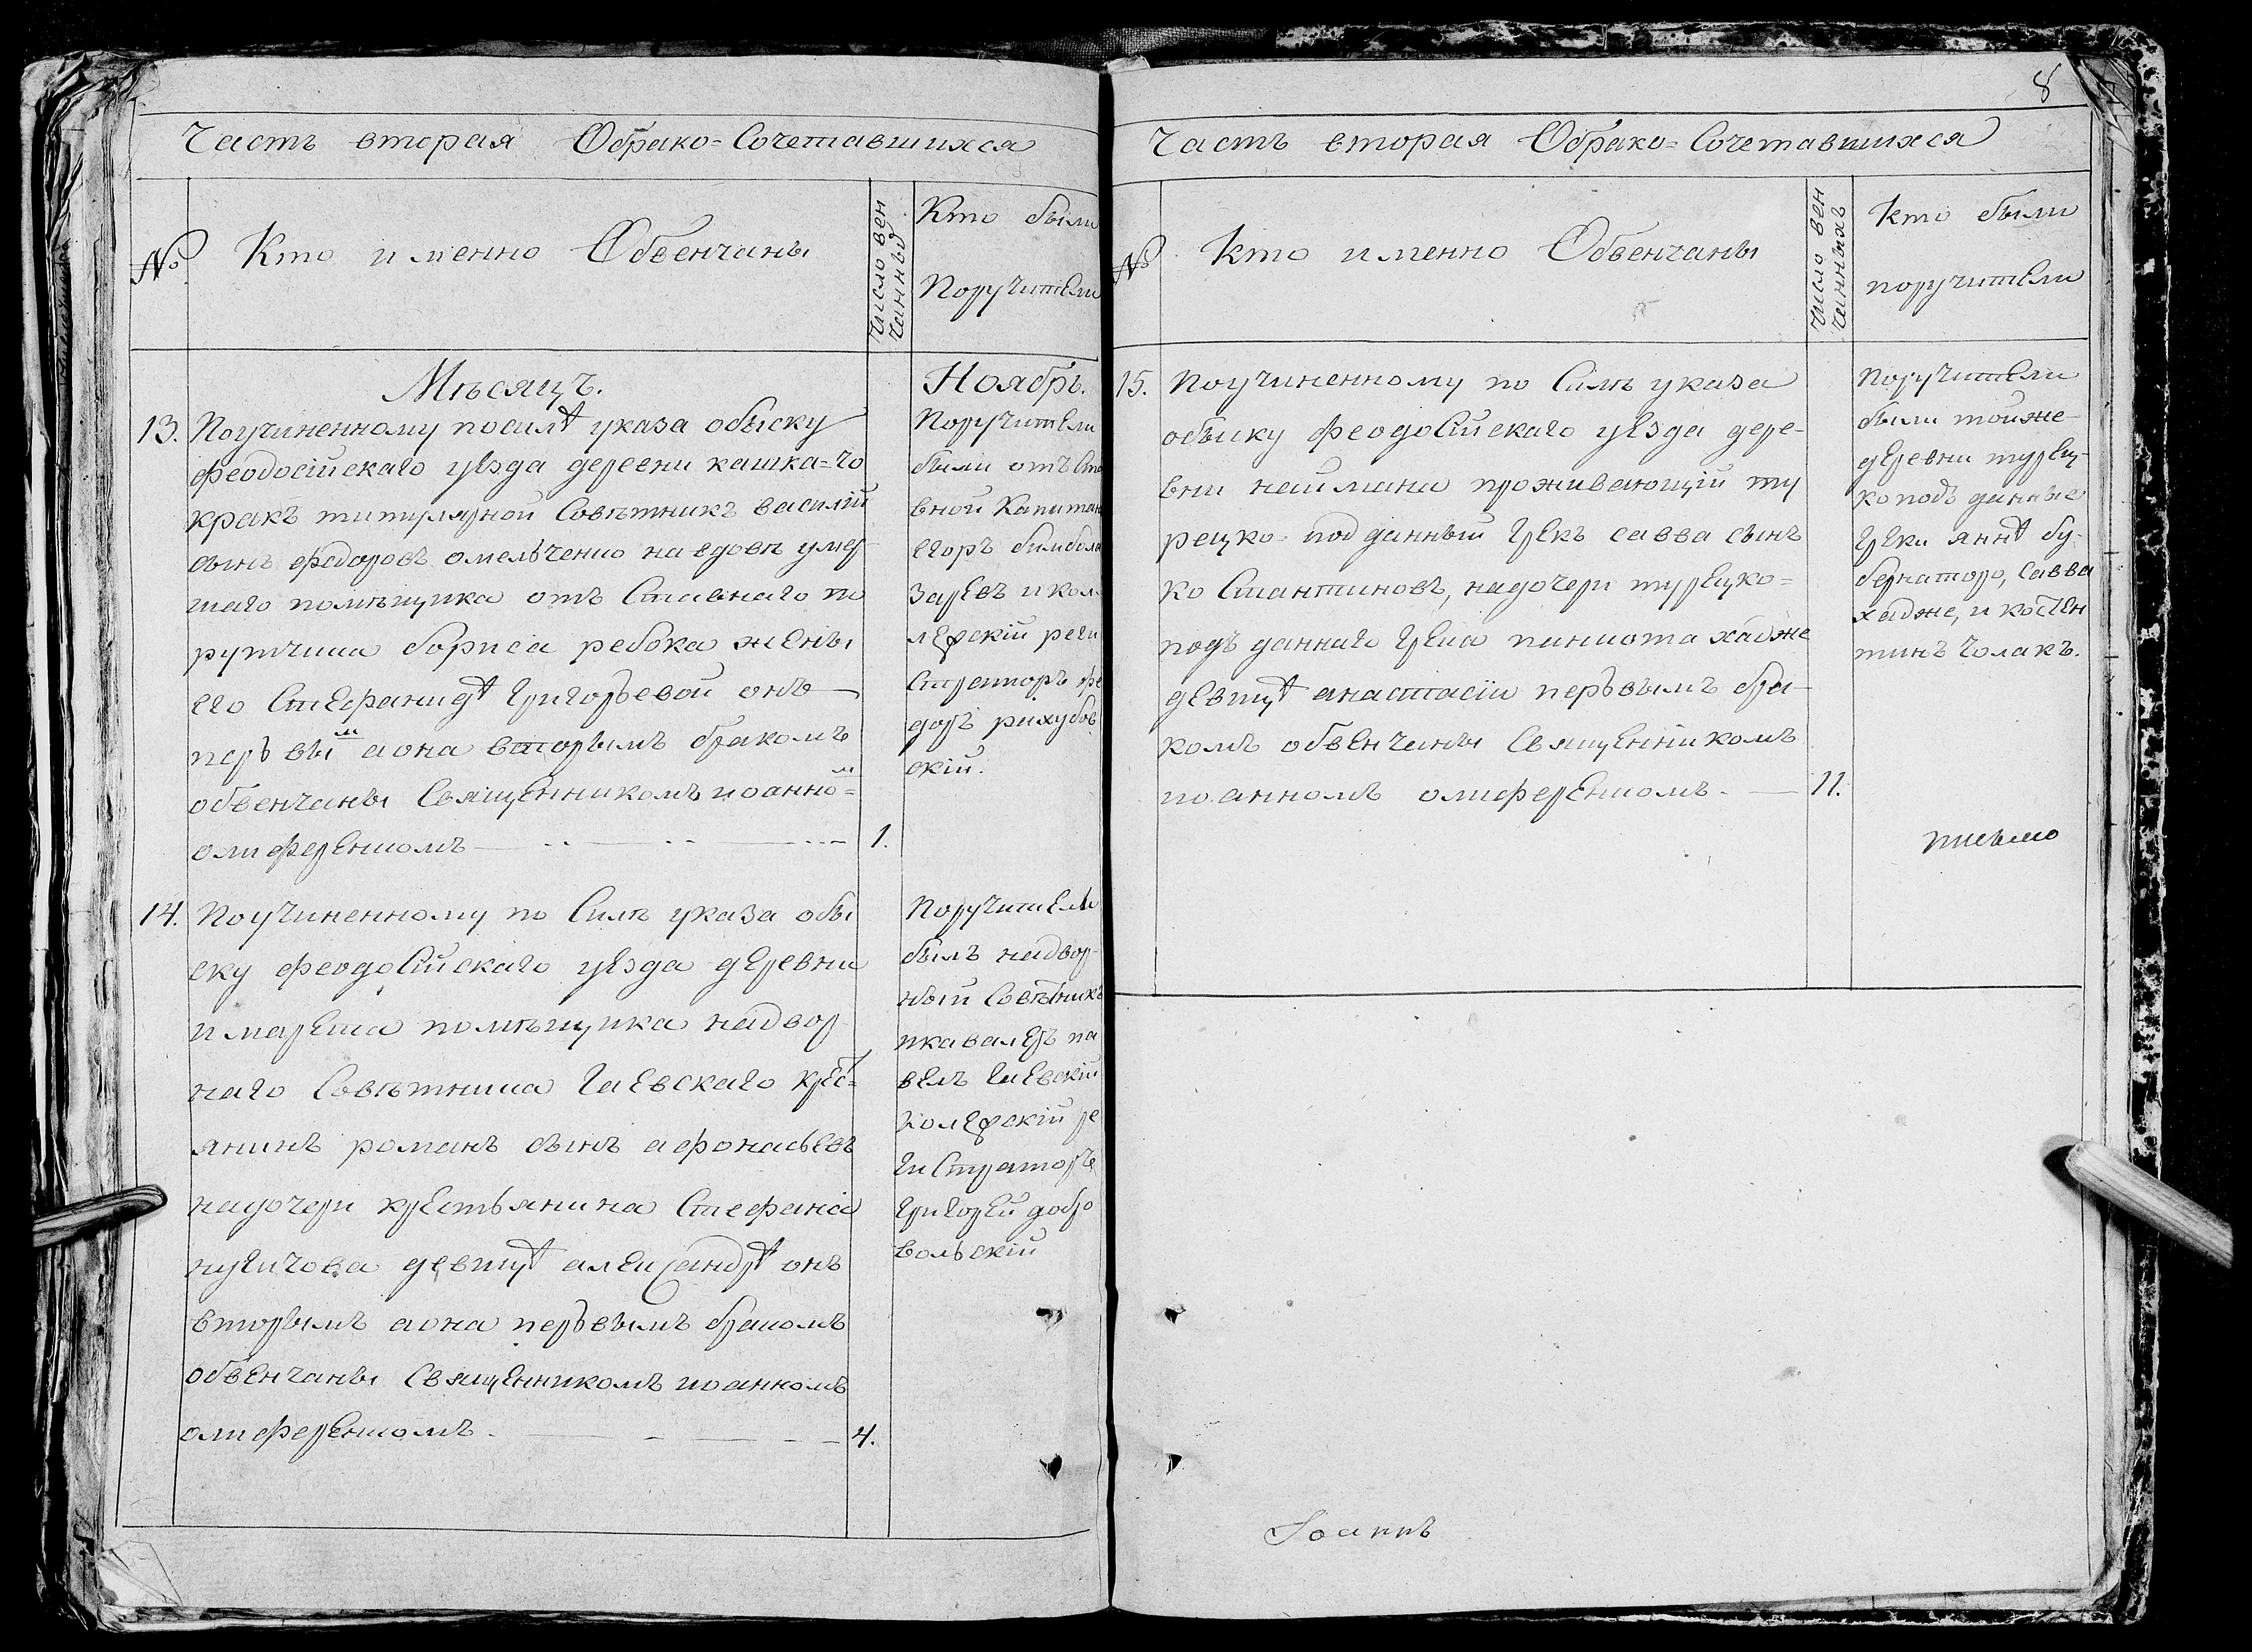 Часть вторая Обрако=Сочетавшихся
№
Кто именно Обвенчаны
Число вен
чанный
Кто были
Поручители
Мѣсяцъ.
Ноябрь.
13. Поучиненному посилѣ указа обыску
феодосійскаго уѣзда деревни кашка=чо
кракъ титулярной Совѣтникъ василій
сынъ федоровъ омельченко навдовѣ умер
шаго помѣщика отъ Ставнаго по
рутчика бориса ребока жены
его Стефанидѣ Григорьевой онъ
перъвым аона вторымъ бракомъ
обвенчаны Священникомъ иоанно=м
олиференкомъ 1.
Поручители
были отъ Ста
вной Капитан
егоръ
заревъ икол
лежскій реги
страторъ фе
доръ рихубов
скій.
14. Поучиненному по Силѣ указа обы
ску феодосійскаго уѣзда деревни
имареша помѣщика надвор
наго Совѣтника Гаевскаго крес=
янинъ романъ сынъ афонасьевъ
надочери крестьянина Стефана
пугичова девицѣ александрѣ онъ
вторымъ аона перъвымъ бракомъ
обвенчаны Священникомъ иоанномъ
олиференкомъ. 4.
Поручители
былъ надвор-
ный Совѣтникъ
икавалеръ па
велъ Гаевскій
колежскій ре
гистраторъ
Григорей добро
вольскій
8
Часть вторая Обрако=Сочетавшихся
№
Кто именно Обвенчаны
Число вен
чанныхъ
Кто были
поручители
15. Поучиненному по Силѣ указа
обыску феодосійскаго уѣзда дере-
вни наймана проживающій ту
рецко-подданный Грекъ савва сынъ
ко Стантиновъ, надочери турецко=
подъданнаго Грека паниота хадже
девицѣ анастасіи перъвымъ бра-
комъ обвенчаны Священникомъ
иоанномъ олиференкомъ. 11.
Поручители
были тойже
деревни турец-
ко подъ данные
Греки янѣ бу-
бернаторо, савва
хадже, и костен
тинъ чолакъ.
письмо
Іоаннъ